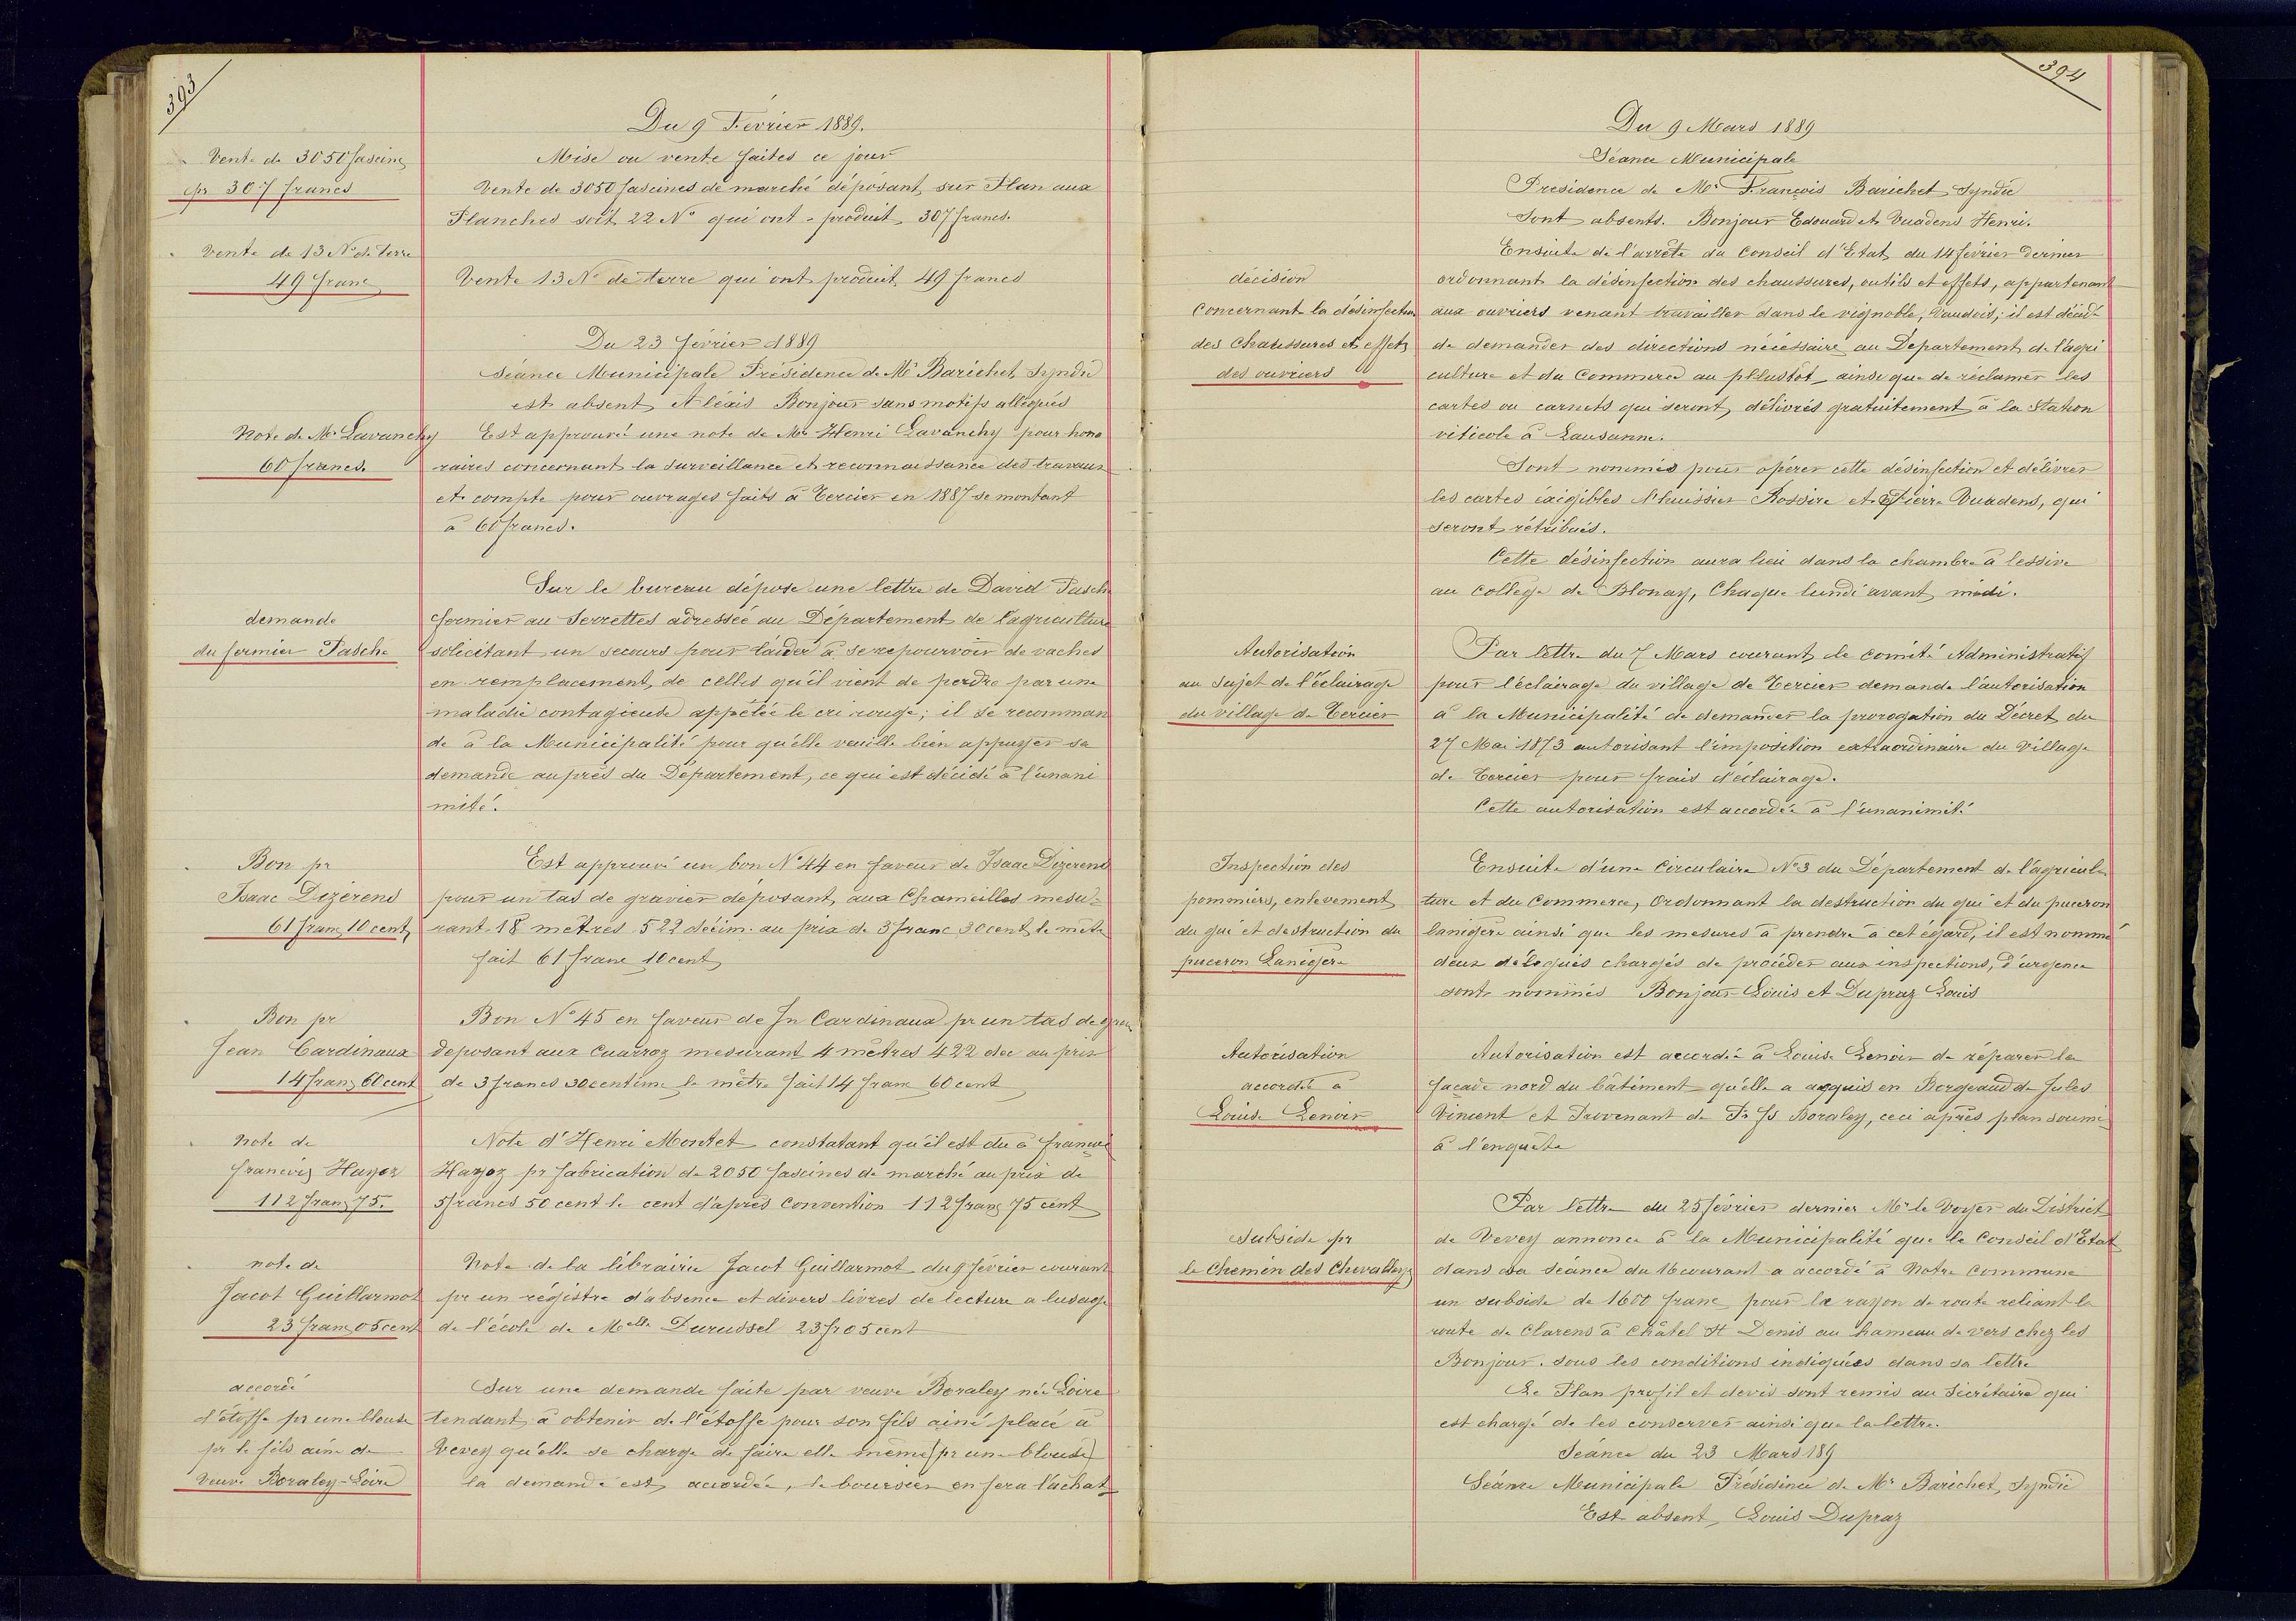 393
Du 9 Février 1889.
Vente de 3050 fascines
pr 307 francs
Mise ou vente faites ce jour
Vente de 3050 fascines de marché déposant sur Plan aux
Planches soit 22 No qui ont produit 307 francs.
Vente de 13 No de terre
49 franc
Vente 13 No de terre qui ont produit 49 francs
Du 23 février 1889
Séance Municipale Présidence de Mr Barichet Syndic
est absent Aléxis Bonjour sans motifs allégués
Note de Mr Lavanchy
60 francs.
Est approuvé une note de Mr Henri Lavanchy pour hono
raires concernant la surveillance et reconnaissance des travaux
et compte pour ouvrages faits à Tercier en 1887 se montant
à 60 francs.
demande
du fermier Pasche
Sur le bureau dépose une lettre de David Pasche
fermier au Serrettes adressée au Département de l'agriculture
solicitant un secours pour l'aider à se repourvoir de vaches
en remplacement de celles qu'il vient de perdre par une
maladie contagieuse appelée le cri rouge; il se recomman
de à la Municipalité pour qu'elle veuille bien appuyer sa
demande auprès du Département, ce qui est décidé à l'unani
mité.
Bon pr
Isaac Dizerens
61 franc 10 cent
Est approuvé un bon No 44 en faveur de Isaac Dizerens
pour un tas de gravier déposant aux Chameilles mesu-
rant 18 mètres 522 décim. au prix de 3 franc 30 cent le mètre
fait 61 franc 10 cent
Bon pr
Jean Cardinaux
14 franc 60 cent
Bon No 45 en faveur de Jn Cardinaux pr un tas de grav
deposant aux Cuarroz mesurant 4 mètres 422 dec au prix
de 3 francs 30 centime le mètre fait 14 franc 60 cent
Note de
François Hayoz
112 franc 75.
Note d'Henri Montet constatant qu'il est du à François
Hayoz pr fabrication de 2050 fascines de marché au prix de
5 francs 50 cent le cent d'après convention 112 franc 75 cent
note de
Jacot Guillarmot
23 franc 05 cent
Note de la librairie Jacot Guillarmot du 9 février courant
pr un régistre d'absence et divers livres de lecture a lusage
de l'école de Melle Durussel 23 fr 05 cent
accordé
d'étoffe pr une blouse
pr le fils ainé de
Veuve Boraley-Loire
Sur une demande faite par veuve Boraley née Loire
tendant à obtenir de l'étoffe pour son fils ainé placé à
Vevey qu'elle se charge de faire elle même (pr une blouse)
la demande est accordée, le boursier en fera l'achat
394
Du 9 Mars 1889
Séance Municipale
Présidence de Mr François Barichet Syndic
Sont absents. Bonjour Edouard et Vuadens Henri.
décision
concernant la désinfection
des chaussures et effets
des ouvriers
Ensuite de l'arrête du Conseil d'Etat du 14 février dernier
ordonnant la désinfection des chaussures, outils et effets, appartenant
aux ouvriers venant travailler dans le vignoble, Vaudois; il est décidé
de demander des directions nécéssaire au Departement de l'agri
culture et du Commerce au pllustot ainsi que de réclamer les
cartes ou carnets qui seront délivrés gratuitement à la Station
viticole à Lausanne.
Sont nommés pour opérer cette désinfection et délivrer
les cartes éxigibles l'huissier Rossire et Pierre Vuadens, qui
seront rétribués.
Cette désinfection aura lieu dans la chambre à lessive
au collège de Blonay, Chaque lundi avant midi.
Autorisation
au sujet de l'éclairage
du village de Tercier
Par lettre du 7 Mars courant le comité Administratif
pour l'éclairage du village de Tercier demande l'autorisation
à la Municipalité de demander la prorogation du Décret du
27 Mai 1873 autorisant l'imposition extraordinaire du Village
de Tercier pour frais d'éclairage.
Cette autorisation est accordée à l'unanimité
Inspection des
pommiers, enlevement
du gui et destruction du
puceron Lanigère
Ensuite d'une Circulaire No 3 du Département de l'agricul-
ture et du Commerce, Ordonnant la destruction du gui et du puceron
lanigère ainsi que les mesures à prendre à cet égard, il est nommé
deux délégués chargés de procéder aux inspections, d'urgence
sont nommés Bonjour Louis et Dupraz Louis
Autorisation
accordée à
Louise Lenoir
Autorisation est accordée à Louise Lenoir de réparer la
façade nord du bâtiment qu'elle a acquis en Borgeaud de Jules
Vincent et Provenant de Fs Js Boraley, ceci après plan soumi
à l'enquète
Subside pr
le Chemin des Chevalleyz
Par lettre du 25 février dernier Mr le Voyer du District
de Vevey annonce à la Municipalité que le Conseil d'Etat
dans sa séance du 16 courant a accordé à Notre Commune
un subside de 1600 franc pour le rayon de route reliant la
route de Clarens à Châtel St Denis au hameau de vers chez les
Bonjour. sous les conditions indiquées dans sa lettre
Le Plan profil et devis sont remis au Sécrétaire qui
est chargé de les conserver ainsi que la lettre.
Séance du 23 Mars 189
Séance Municipale Présidence de Mr Barichet, Syndic
Est absent, Louis Dupraz